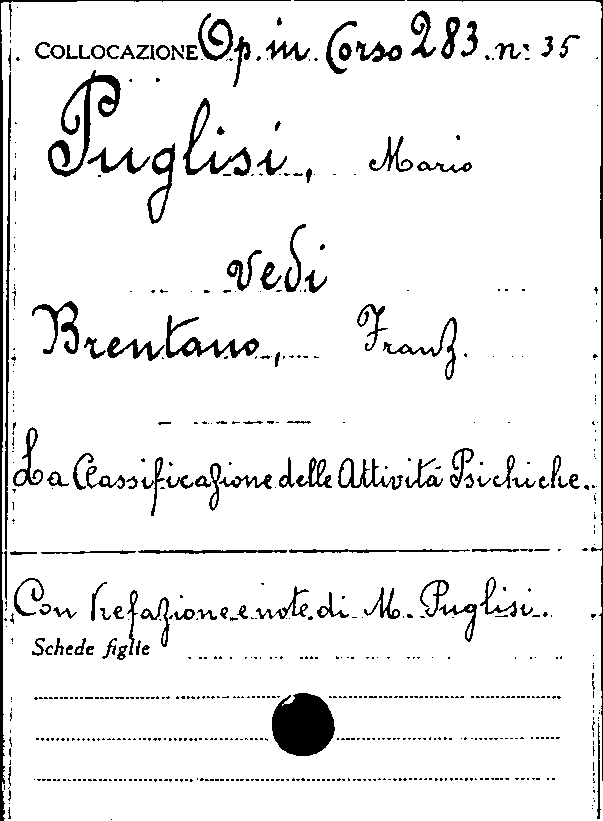 COLLOCAZIONE Op. in Corso 283. n: 35
Puglisi, Mario
vedi
Brentano, Franz.
La Classificazione delle Attività Psichiche.
Con Prefazione e note di M. Puglisi.
Schede figlie